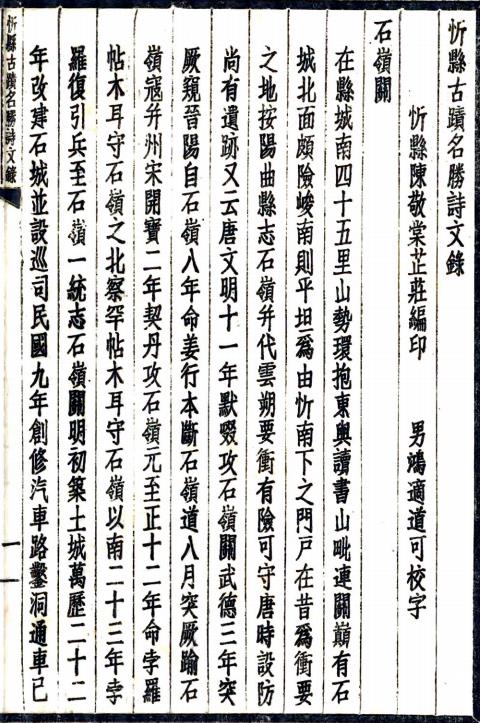 忻縣古蹟名勝詩文錄
忻縣陳敬棠芷莊編印　男鴻適道可校字
石嶺關
在縣城南四十五里山勢環抱東與讀書山毗連關巔有石
城北面頗險峻南則平坦爲由忻南下之門戶在昔爲衝要
之地按陽曲縣志石嶺幷代雲朔要衝有險可守唐時設防
尚有遺跡又云唐文明十一年默啜攻石嶺關武德三年突
厥窺晉陽自石嶺八年命姜行本斷石嶺道八月突厥踰石
嶺寇幷州宋開寶二年契丹攻石嶺元至正十二年命孛羅
帖木耳守石嶺之北察罕帖木耳守石嶺以南二十三年孛
羅復引兵至石嶺一統志石嶺關明初築土城萬歷二十二
年改建石城並設巡司民國九年創修汽車路鑿洞通車已
忻縣古蹟名勝詩文錄
一